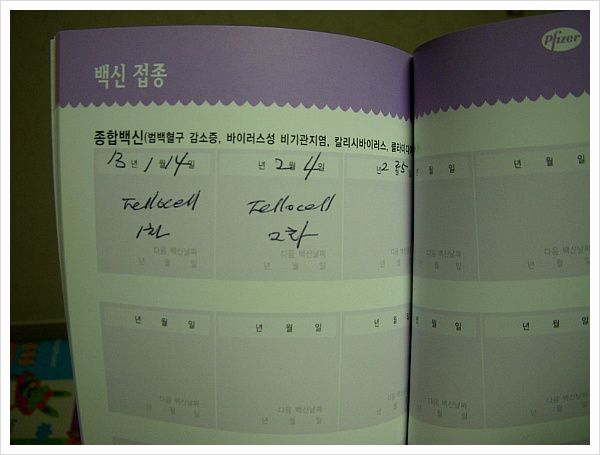 Pfizer
백신 접종
종합백신(범백혈구 감소증, 바이러스성 비기관지염, 칼리시바이러스, 클라미디
13년 1월 14일
Fellocell
1차
다음 백신날짜
년 월 일
년 2월 4일
Fellocell
2차
다음 백신날짜
년 월 일
년 2월 25일
다음 백신날짜
년 월 일
년 월 일
년 월 일
다음 백신날짜
년 월 일
년 월 일
다음 백신날짜
년 월 일
년 월 일
다음 백신날짜
년 월 일
년 월 일
다음 백신날짜
년 월 일
년 월 일
다음 백신날짜
년 월 일